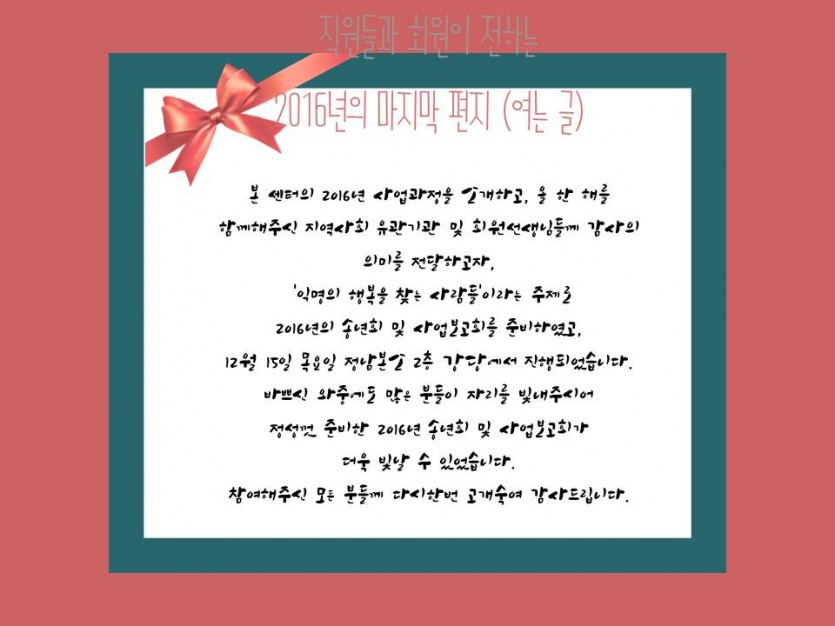 직원들과 회원이 전하는
2016년의 마지막 편지 (여는 글)
본 센터의 2016년 사업과정을 소개하고, 올 한 해를
함께해주신 지역사회 유관기관 및 회원선생님들께 감사의
의미를 전달하고자,
'익명의 행복을 찾는 사람들'이라는 주제로
2016년의 송년회 및 사업보고회를 준비하였고,
12월 15일 목요일 정남본소 2층 강당에서 진행되었습니다.
바쁘신 와중에도 많은 분들이 자리를 빛내주시어
정성껏 준비한 2016년 송년회 및 사업보고회가
더욱 빛날 수 있었습니다.
참여해주신 모든 분들께 다시한번 고개숙여 감사드립니다.